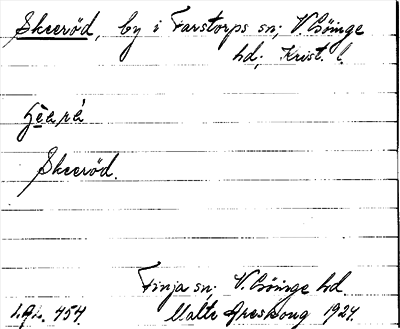 Skeeröd, by i Farstorps sn; V. Göinge
hd; Krist. l.
Skeeröd.
Finja sn. V. Göinge hd
454. Malte Areskoug 1924.